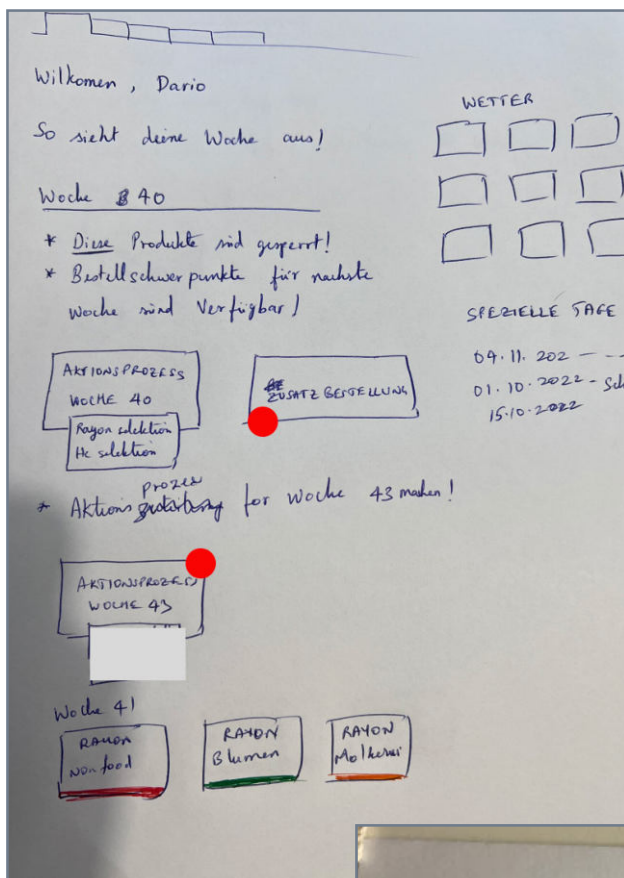 Wilkomen, Dario
So sieht deine Woche aus!
Woche 40
* Diese Produkte sind gesperrt!
* Bestellschwerpunkte für nachste
Woche sind Verfügbar!
AKTIONSPROZESS
WOCHE 40
Rayon selektion
Hc selektion
ZUSATZ BESTELLUNG
prozess
* Aktions for Woche 43 machen!
AKTIONSPROZESS
WOCHE 43
Woche 41
RAYON
Non food
RAYON
Blumen
RAYON
Molkerei
WETTER
SPEZIELLE TAGE
04.11.202 - - -
01.10.2022 - Sch
15.10.2022